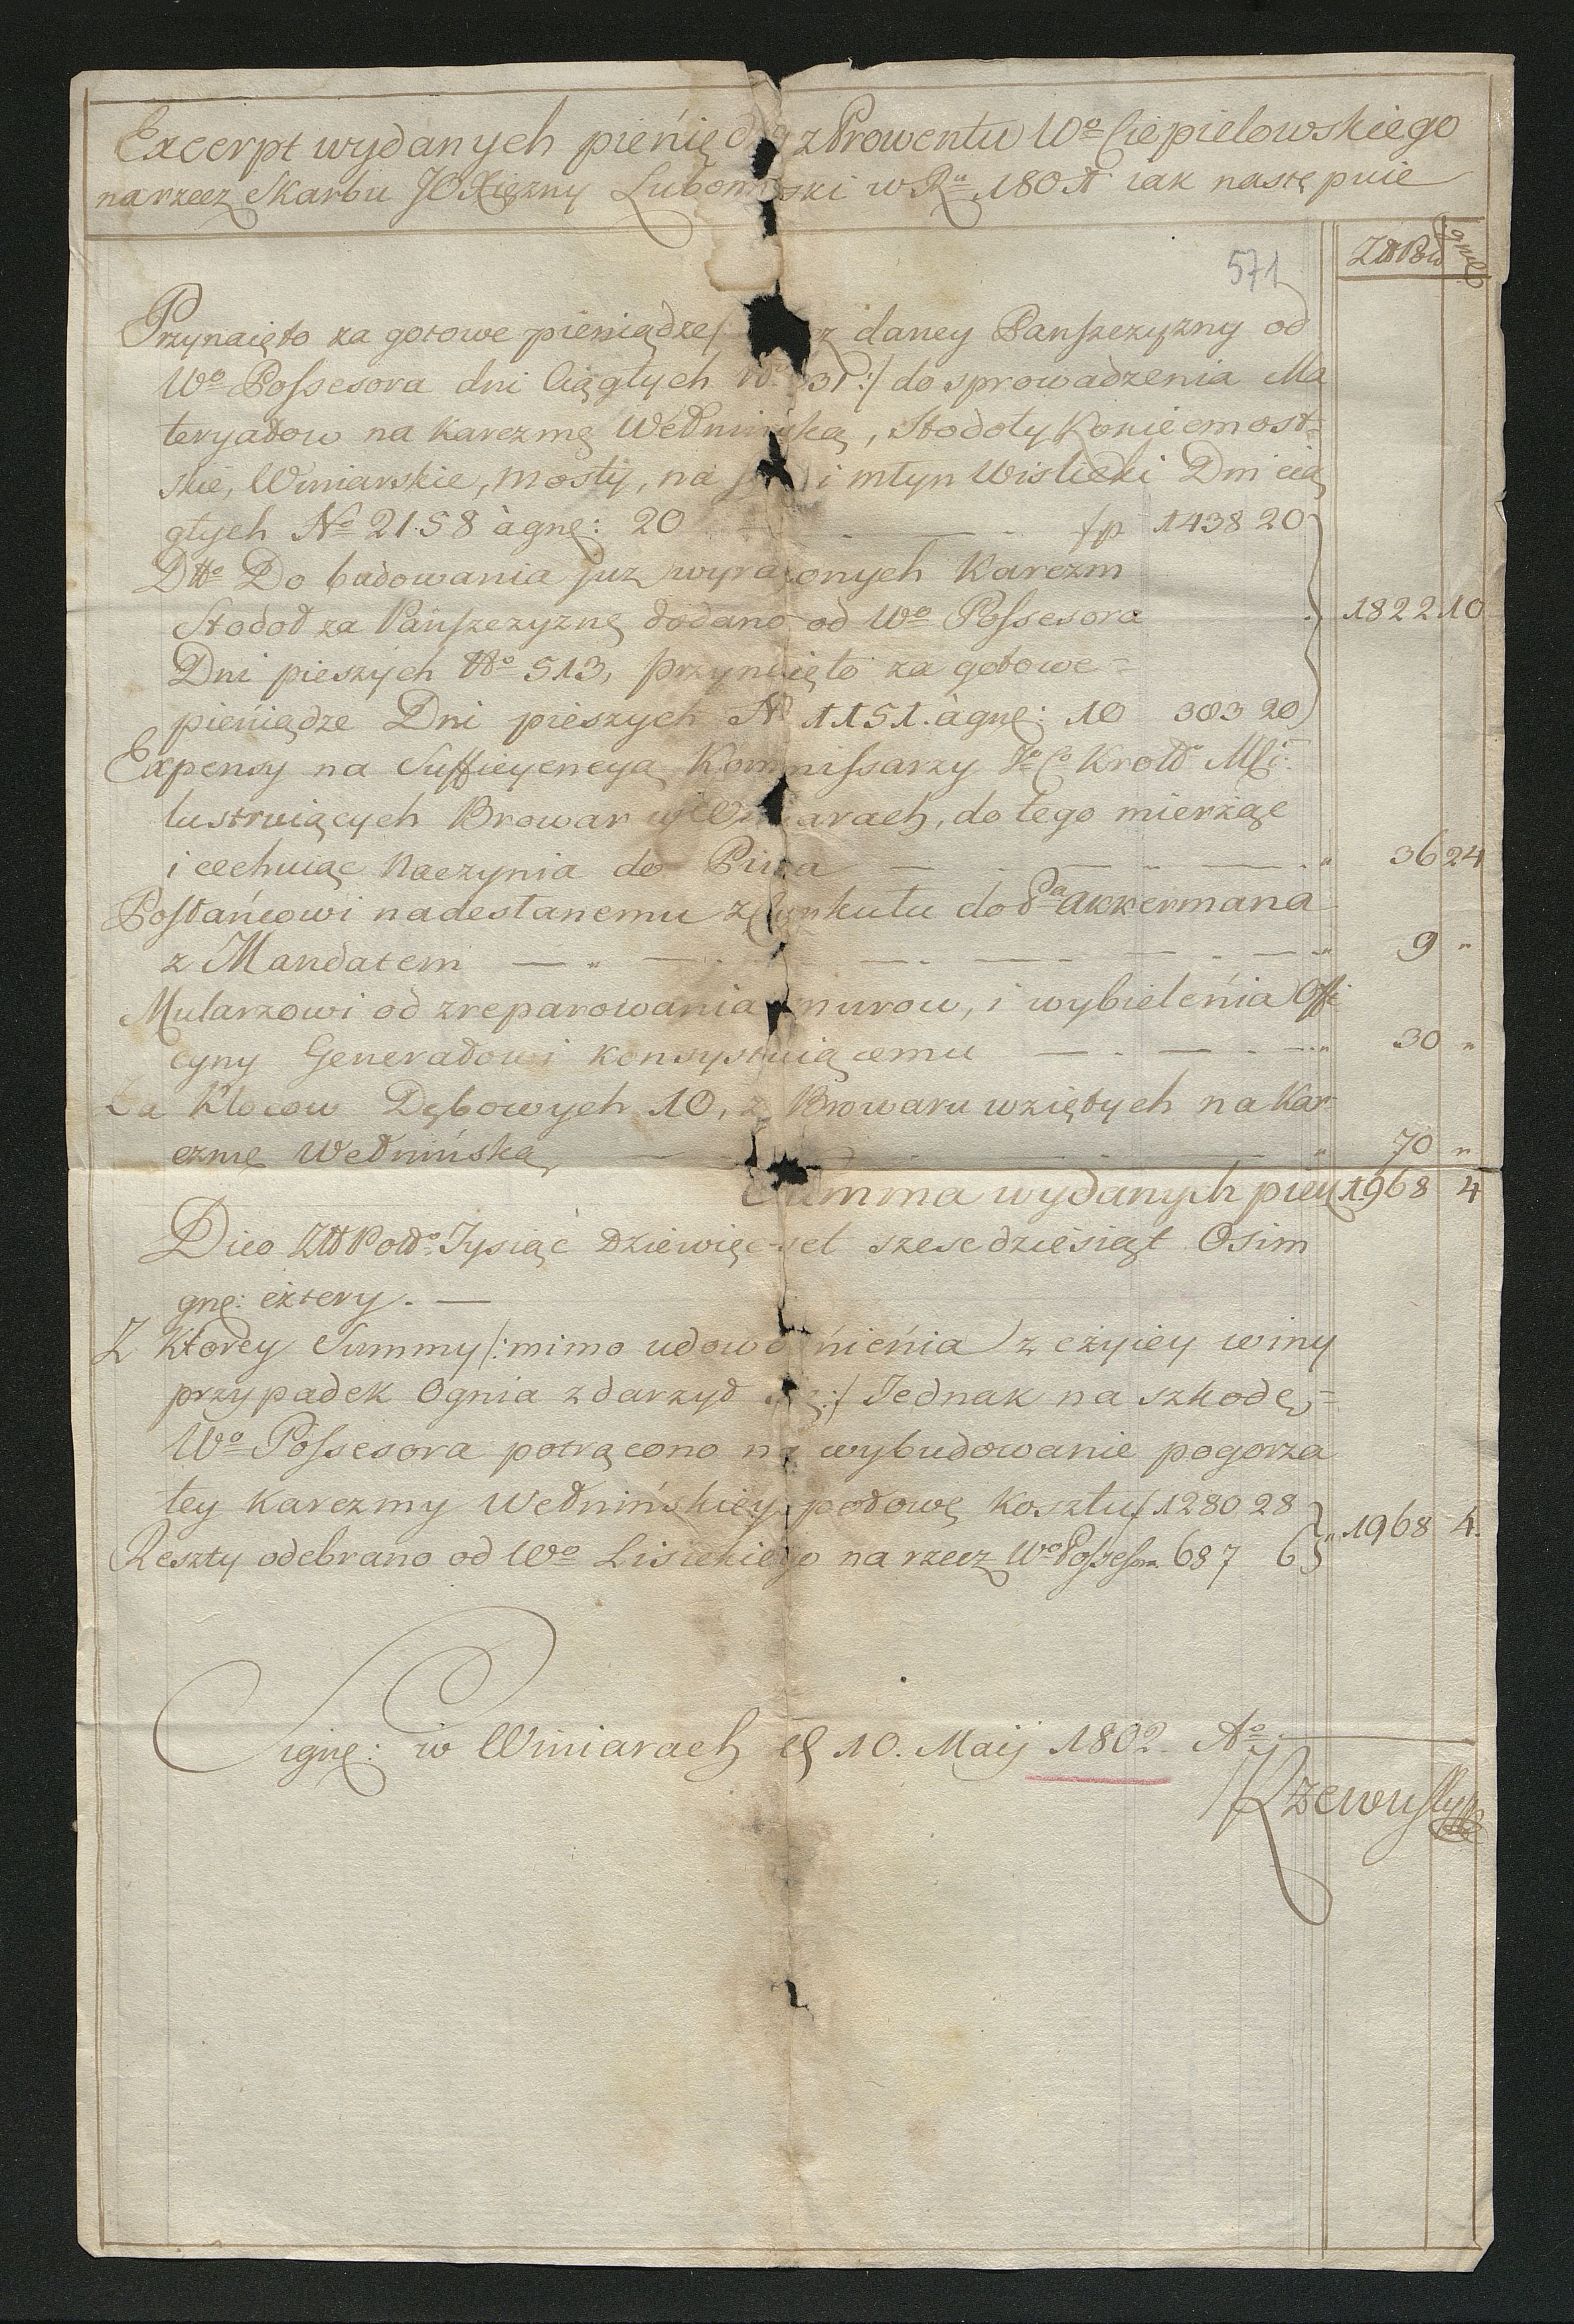 Excerpt wydanych pienię z Prowentu Wo Ciepielowskiego
na rzecz Skarbu JO Xiężny Lubomirski w Ru 1801 iak następuie
571
ZłłPow grę
Przynaięto za gotowe pieniądze /: daney Panszczyzny od
Wo Possesora dni Ciągłych 31 :/ do sprowadzenia Ma
teryałow na Karczmę Wełnińską, Stodoły Koniecmost=
skie, Winiarskie, mosty, na i młyn Wislicki Dni cią
głych No 2158 à grę: 20 fp 1438 20
Dtto Do budowania iuz wyrażonych Karczm
Stodoł za Panszczyznę dodano od Wo Possesora 1822 10
Dni pieszych No 513, przynaięto za gotowe=
pieniądze Dni pieszych No 1151. à grę: 10 383 20
Expensy na Sufficyencyą Kommissarzy Krolł
lustruiących Browar w Winiarach, do tego mierżąc
i cechuiąc Naczynia do Piwa 36 24
Posłańcowi nadesłanemu do Pa Akkermana
z Mandatem 9 "
Mularzowi od zreparowania murow, i wybielenia Offi
cyny Generałowi konsystuiącemu 30 "
Za Klocow Dębowych 10, z Browaru wziętych na Kar
czmę Wełnińską 70 "
Summa wydanych pien 1968 4
Dico Złł Pol Tysiąc Dziewięcset szescdziesiąt Osim
grę: cztery. —
Z Ktorey Summy /: mimo udowodnienia z czyiey winy
przypadek Ognia zdarzył się :/ Iednak na szkodę=
Wo Possesora potrącono na wybudowanie pogorza
łey Karczmy Wełnińskiey połowę Kosztu f 1280 28
Reszty odebrano od Wo Lisickiego na rzecz Wo Possesora 687 6 1968 4.
Signę: w Winiarach d 10. Maij 1802. Ao
Rzewuski